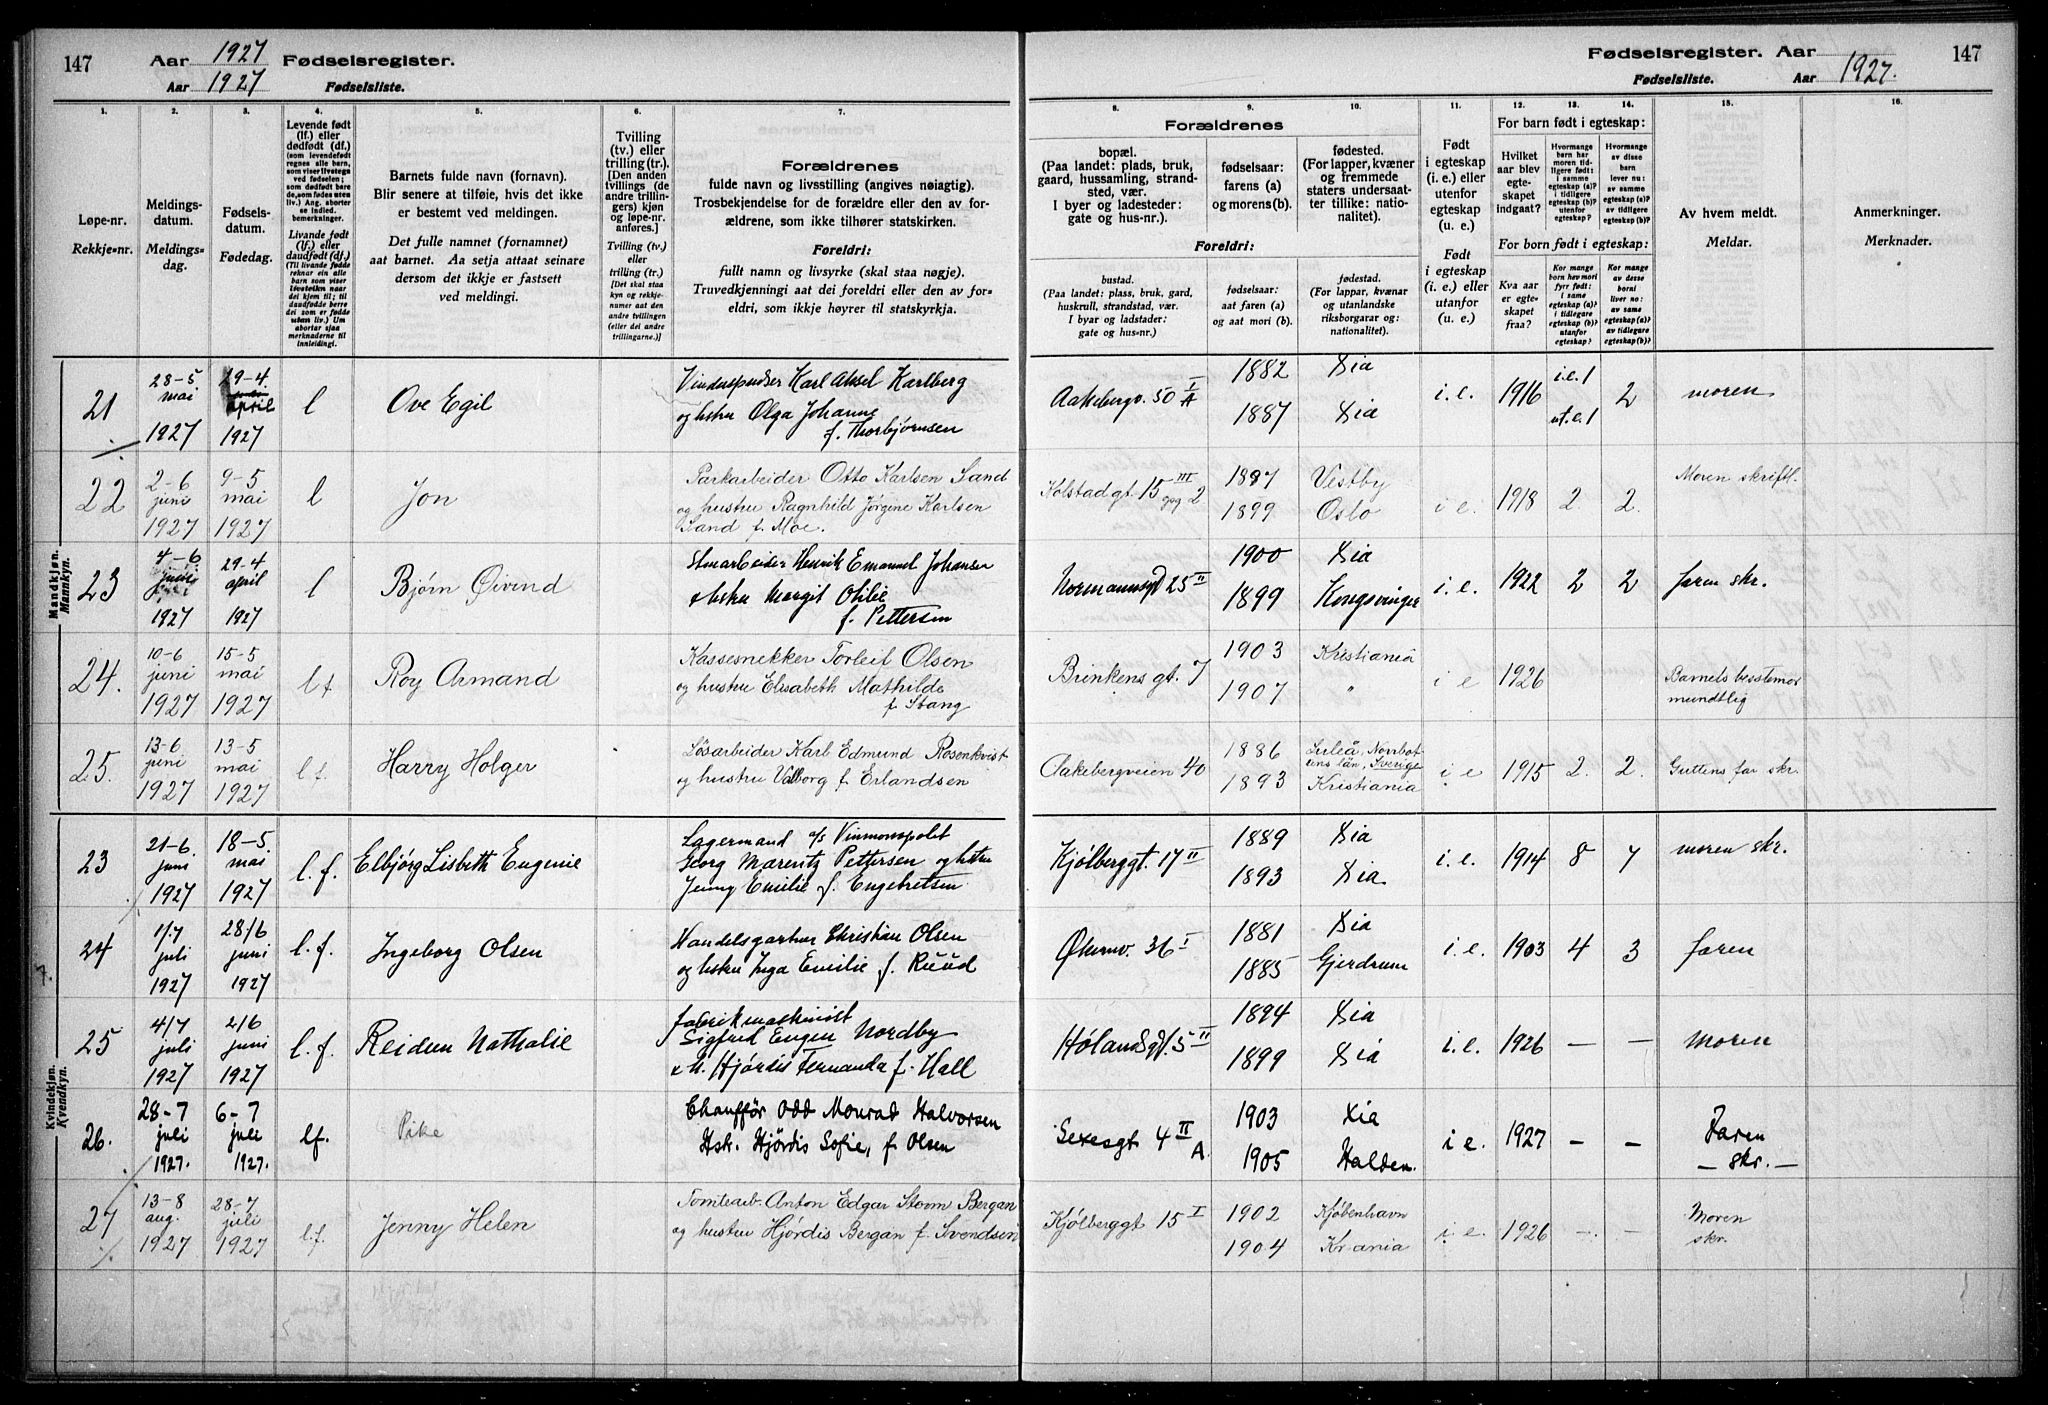 147 Aar 1927 Fødselsregister.
Aar 1927 Fødselsliste.
Fødselsregister. Aar 1927. 147
Fødselsliste. Aar
1. 2. 3. 4. 5. 6. 7.
Løpe-nr.
Rekkje-nr.
Meldings-
datum.
Meldings-
dag.
Fødsels-
datum.
Fødedag.
Levende født
(lf.) eller
dødfødt (df.)
(som levendefødt
regnes alle barn,
som viser livstegn
ved fødselen;
som dødfødt bare
de, som fødes uten
liv.) Ang. aborter
se indled.
bemerkninger.
Livande født
(lf.) eller
daudfødt (df.)
(Til livande fødde
reknar ein alle
born som viser
livsteikn naar
dei kjem til; til
daudfødde berre
dei som er fødde
utan liv.) Um
abortar sjaa
merknaderne til
innleidingi.
Barnets fulde navn (fornavn).
Blir senere at tilføie, hvis det ikke
er bestemt ved meldingen.
Det fulle namnet (fornamnet)
aat barnet. Aa setja attaat seinare
dersom det ikkje er fastsett
ved meldingi.
Tvilling
(tv.) eller
trilling (tr.).
[Den anden
tvillings (de
andre trillin-
gers) kjøn
og løpe-nr.
anføres.]
Tvilling (tv.)
eller
trilling (tr.)
[Det skal staa
kyn og rekkje-
numer aat den
andre tvillingen
(eller dei andre
trillingarne.)]
Forældrenes
fulde navn og livsstilling (angives nøiagtig).
Trosbekjendelse for de forældre eller den av for-
ældrene, som ikke tilhører statskirken.
Foreldri:
fullt namn og livsyrke (skal staa nøgje).
Truvedkjenningi aat dei foreldri eller den av for-
eldri, som ikkje høyrer til statskyrkja.
8. 9. 10. 11. 12. 13. 14. 15. 16.
Forældrenes
bopæl.
(Paa landet: plads, bruk,
gaard, hussamling, strand-
sted, vær.
I byer og ladesteder:
gate og hus-nr.).
fødselsaar:
farens (a)
og morens (b).
fødested.
(For lapper, kvæner
og fremmede
staters undersaat-
ter tillike: natio-
nalitet).
Foreldri:
bustad.
(Paa landet: plass, bruk, gard,
huskrull, strandstad, vær.
I byar og ladstader:
gate og hus-nr.).
fødselsaar:
aat faren (a)
og aat mori (b).
fødestad.
(For lappar, kvænar
og utanlandske
riksborgarar og:
nationalitet).
Født
i egteskap
(i. e.) eller
utenfor
egteskap
(u. e.).
Født
i egteskap
(i. e.) eller
utanfor
egteskap
(u. e.).
For barn født i egteskap:
Hvilket
aar blev
egte-
skapet
indgaat?
Hvormange
barn har
moren tid-
ligere født:
i samme
egteskap (a)?
i tidligere
egteskap (b)?
utenfor
egteskap?
Hvormange
av disse
barn
lever nu:
av samme
egteskap (a)?
av tidligere
egteskap (b)?
For born født i egteskap:
Kva aar
er egte-
skapet
fraa?
Kor mange
born hev mori
fyrr født:
i same
egteskap (a)?
i tidlegare
egteskap (b)?
utanfor
egteskap?
Kor mange
av desse
borni
liver no:
av same
egteskap (a)?
av tidlegare
egteskap (b)?
Av hvem meldt.
Meldar.
Anmerkninger.
Merknader.
Mandkjøn.
Mannkyn.
21 28-5. mai 1927 29-4. april 1927 l Ove Egil
Karl Aksel Karlberg
og hstru Olga Johanne
f. Thorbjørnsen
Aakebergv. 50 I A 1882 Xia 1887 Xia i.e. 1916 i.e. 1 ut.e. 1 2 moren
22 2-6 juni 1927 9-5 mai 1927 l Jon
Parkarbeider Otto Karlsen Sand
og hustru Ragnhild Jørgine Karlsen
Sand f. Moe.
Kolstadgt 15 III opg 2 1887 Vestby 1899 Oslo i e. 1918 2. 2. Moren skriftl.
23 4-6 juni 1927 29-4 april 1927 l Bjørn Øivind
Henrik Emanuel Johansen
& hstru Margit Otilie
f. Pettersen
Normannsgt 25 II 1900 Xia 1899 Kongsvinger i.e. 1922 2 2 faren skr.
24. 10-6 juni 1927 15-5 mai 1927 lf Roy Armand
Kassesnekker Torleif Olsen
og hustru Elisabeth Mathilde
f. Stang
Brinkens gt. 7 1903 Kristiania 1907 " i e 1926 Barnets besstemor
mundtlig
25. 13-6 juni 1927 13-5 mai 1927 lf. Harry Holger
Løsarbeider Karl Edmund Rosenkvist
og hustru Valborg f. Erlandsen
Aakebergveien 40 1886 Luleå, Norrbot-
tens län, Sverige 1893 Kristiania i e 1915 2. 2. Guttens far skr.
Kvindekjøn.
Kvendkyn.
23 21-6. juni 1927 18-5. mai 1927 l. f. Elbjørg Lisbeth Eugenie
Lagermand a/s Vinmonopolet
Georg Marentz Pettersen og hstru
Jenny Emilie f. Engebretsen
Kjølberggt. 17 II 1889 Xia 1893 Xia. i.e. 1914 8 7 moren skr.
24 1/7 juli 1927 28/6 juni 1927 l. f. Ingeborg Olsen
Handelsgartner Christian Olsen
og hstru Inga Emilie f. Ruud
Økernv. 36 I 1881 Xia 1885 Gjerdrum i. e. 1903 4 3 faren
25 4/7 juli 1927 2/6 juni 1927 l. f. Reidun Nathalie
fabrikmaskinist
Sigfred Eugen Nordby
& h. Hjørdis Fernanda f. Hall
Hølandsgt. 5 II 1894 Xia 1899 Xia i. e. 1926 — — Moren
26. 28-7 juli 1927. 6-7 juli 1927. lf. Pike
Chauffør Odd Monrad Halvorsen
Hstr. Hjørdis Sofie, f. Olsen
Sexesgt 4 II A. 1903 Xia 1905 Halden. i e. 1927 — — Faren
— skr. —
27 13-8 aug. 1927 28-7 juli 1927 l.f. Jenny Helen
Tomtearb. Anton Edgar Storm Bergan
og hustru Hjørdis Bergan f. Svendsen
Kjølberggt 15 I 1902 Kjøbenhavn 1904 Kr.ania i e. 1926 — — Moren
skr.